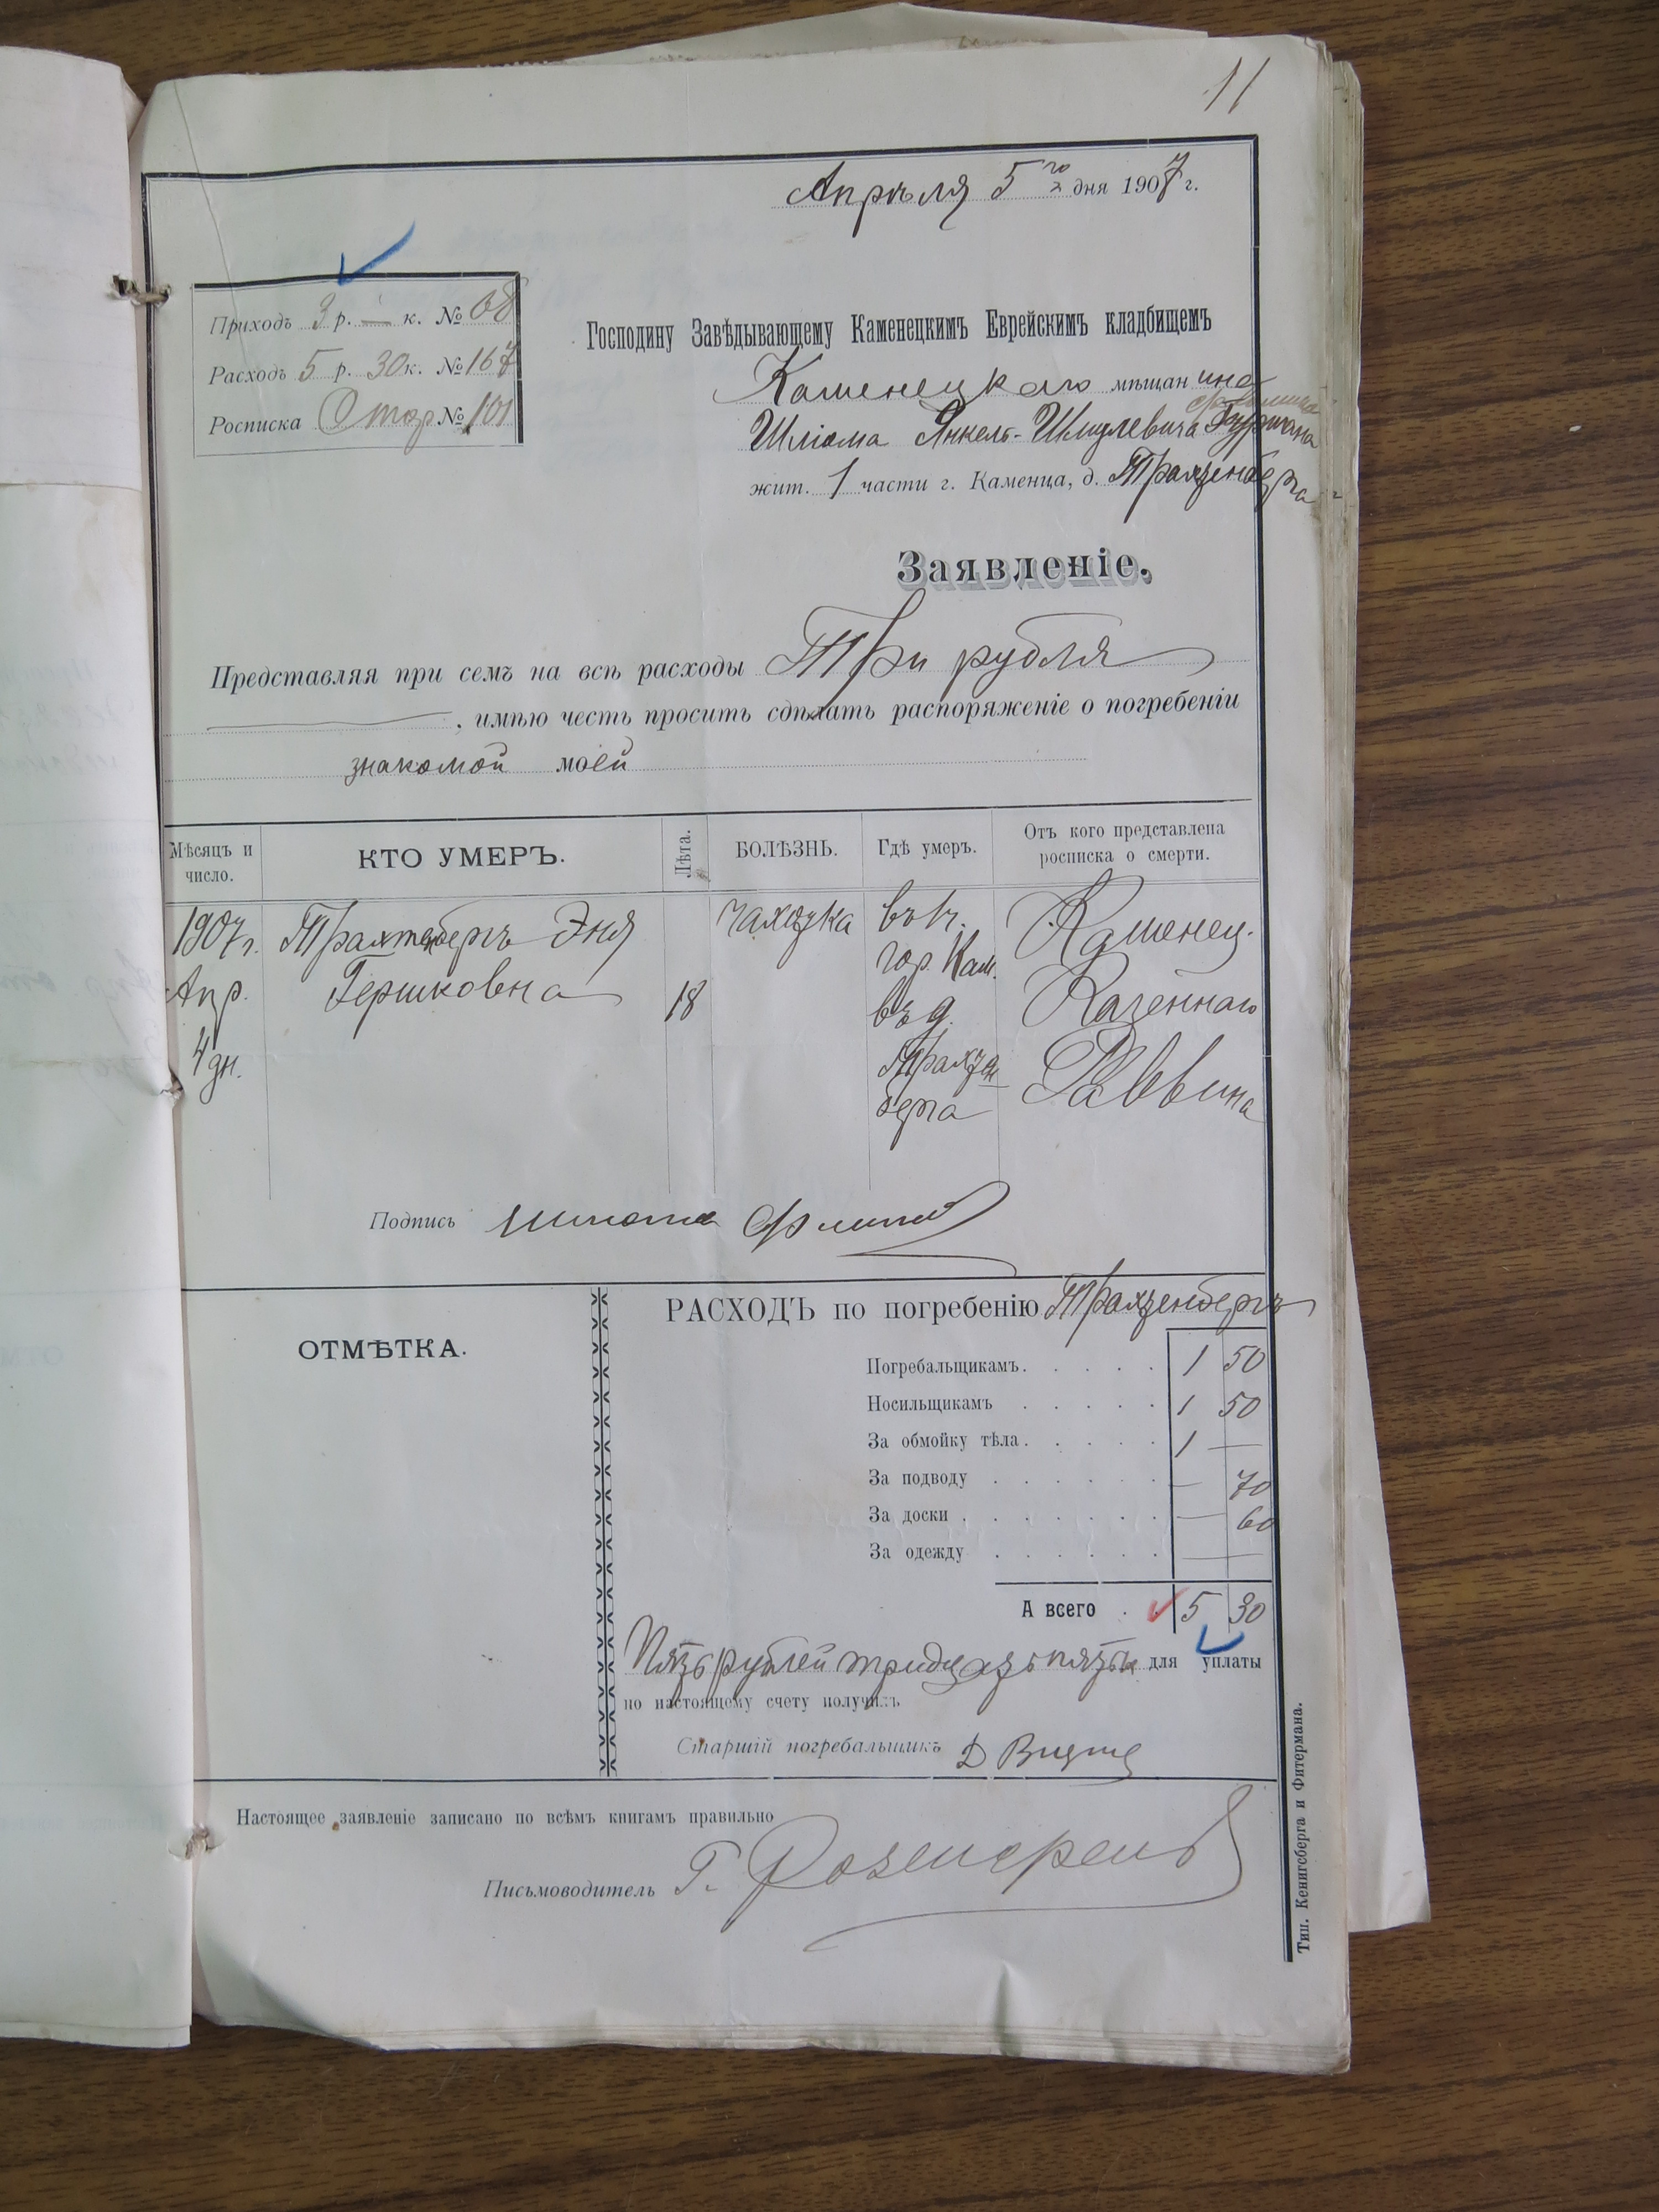 11
Апрѣля 5го дня 1907 г.
Приходъ 3 р. — к. № 68
Расходъ 5 р. 30 к. № 167
Росписка № 101
Господину Завѣдывающему Каменецкимъ Еврейскимъ кладбищемъ
Каменецкаго мѣщанина
Шліома Янкель-Шмулевича
жит. 1 части г. Каменца, д. Трахтенберга
Заявленіе.
Представляя при семъ на всѣ расходы Три рубля
, имѣю честь просить сдѣлать распоряженіе о погребеніи
знакомой моей
Мѣсяцъ и число.
КТО УМЕРЪ.
Лѣта.
БОЛѢЗНЬ.
Гдѣ умеръ.
Отъ кого представлена росписка о смерти.
1907 г.
Апр.
4 дн.
Трахтенбергъ Эня
Гершковна
18
чахотка
гор. Кам.
въ д.
Трахтен
берга
Каменец.
Казеннаго
Раввина
Подпись
ОТМѢТКА.
РАСХОДЪ по погребенію Трахтенбергъ
Погребальщикамъ. 1 50
Носильщикамъ 1 50
За обмойку тѣла. 1 —
За подводу — 70
За доски — 60
За одежду — —
А всего 5 30
Пять рублей тридцать для уплаты
по настоящему счету получилъ
Старшій погребальщикъ Д
Настоящее заявленіе записано по всѣмъ книгамъ правильно
Письмоводитель Г.
Тип. Кенигсберга и Фитермана.